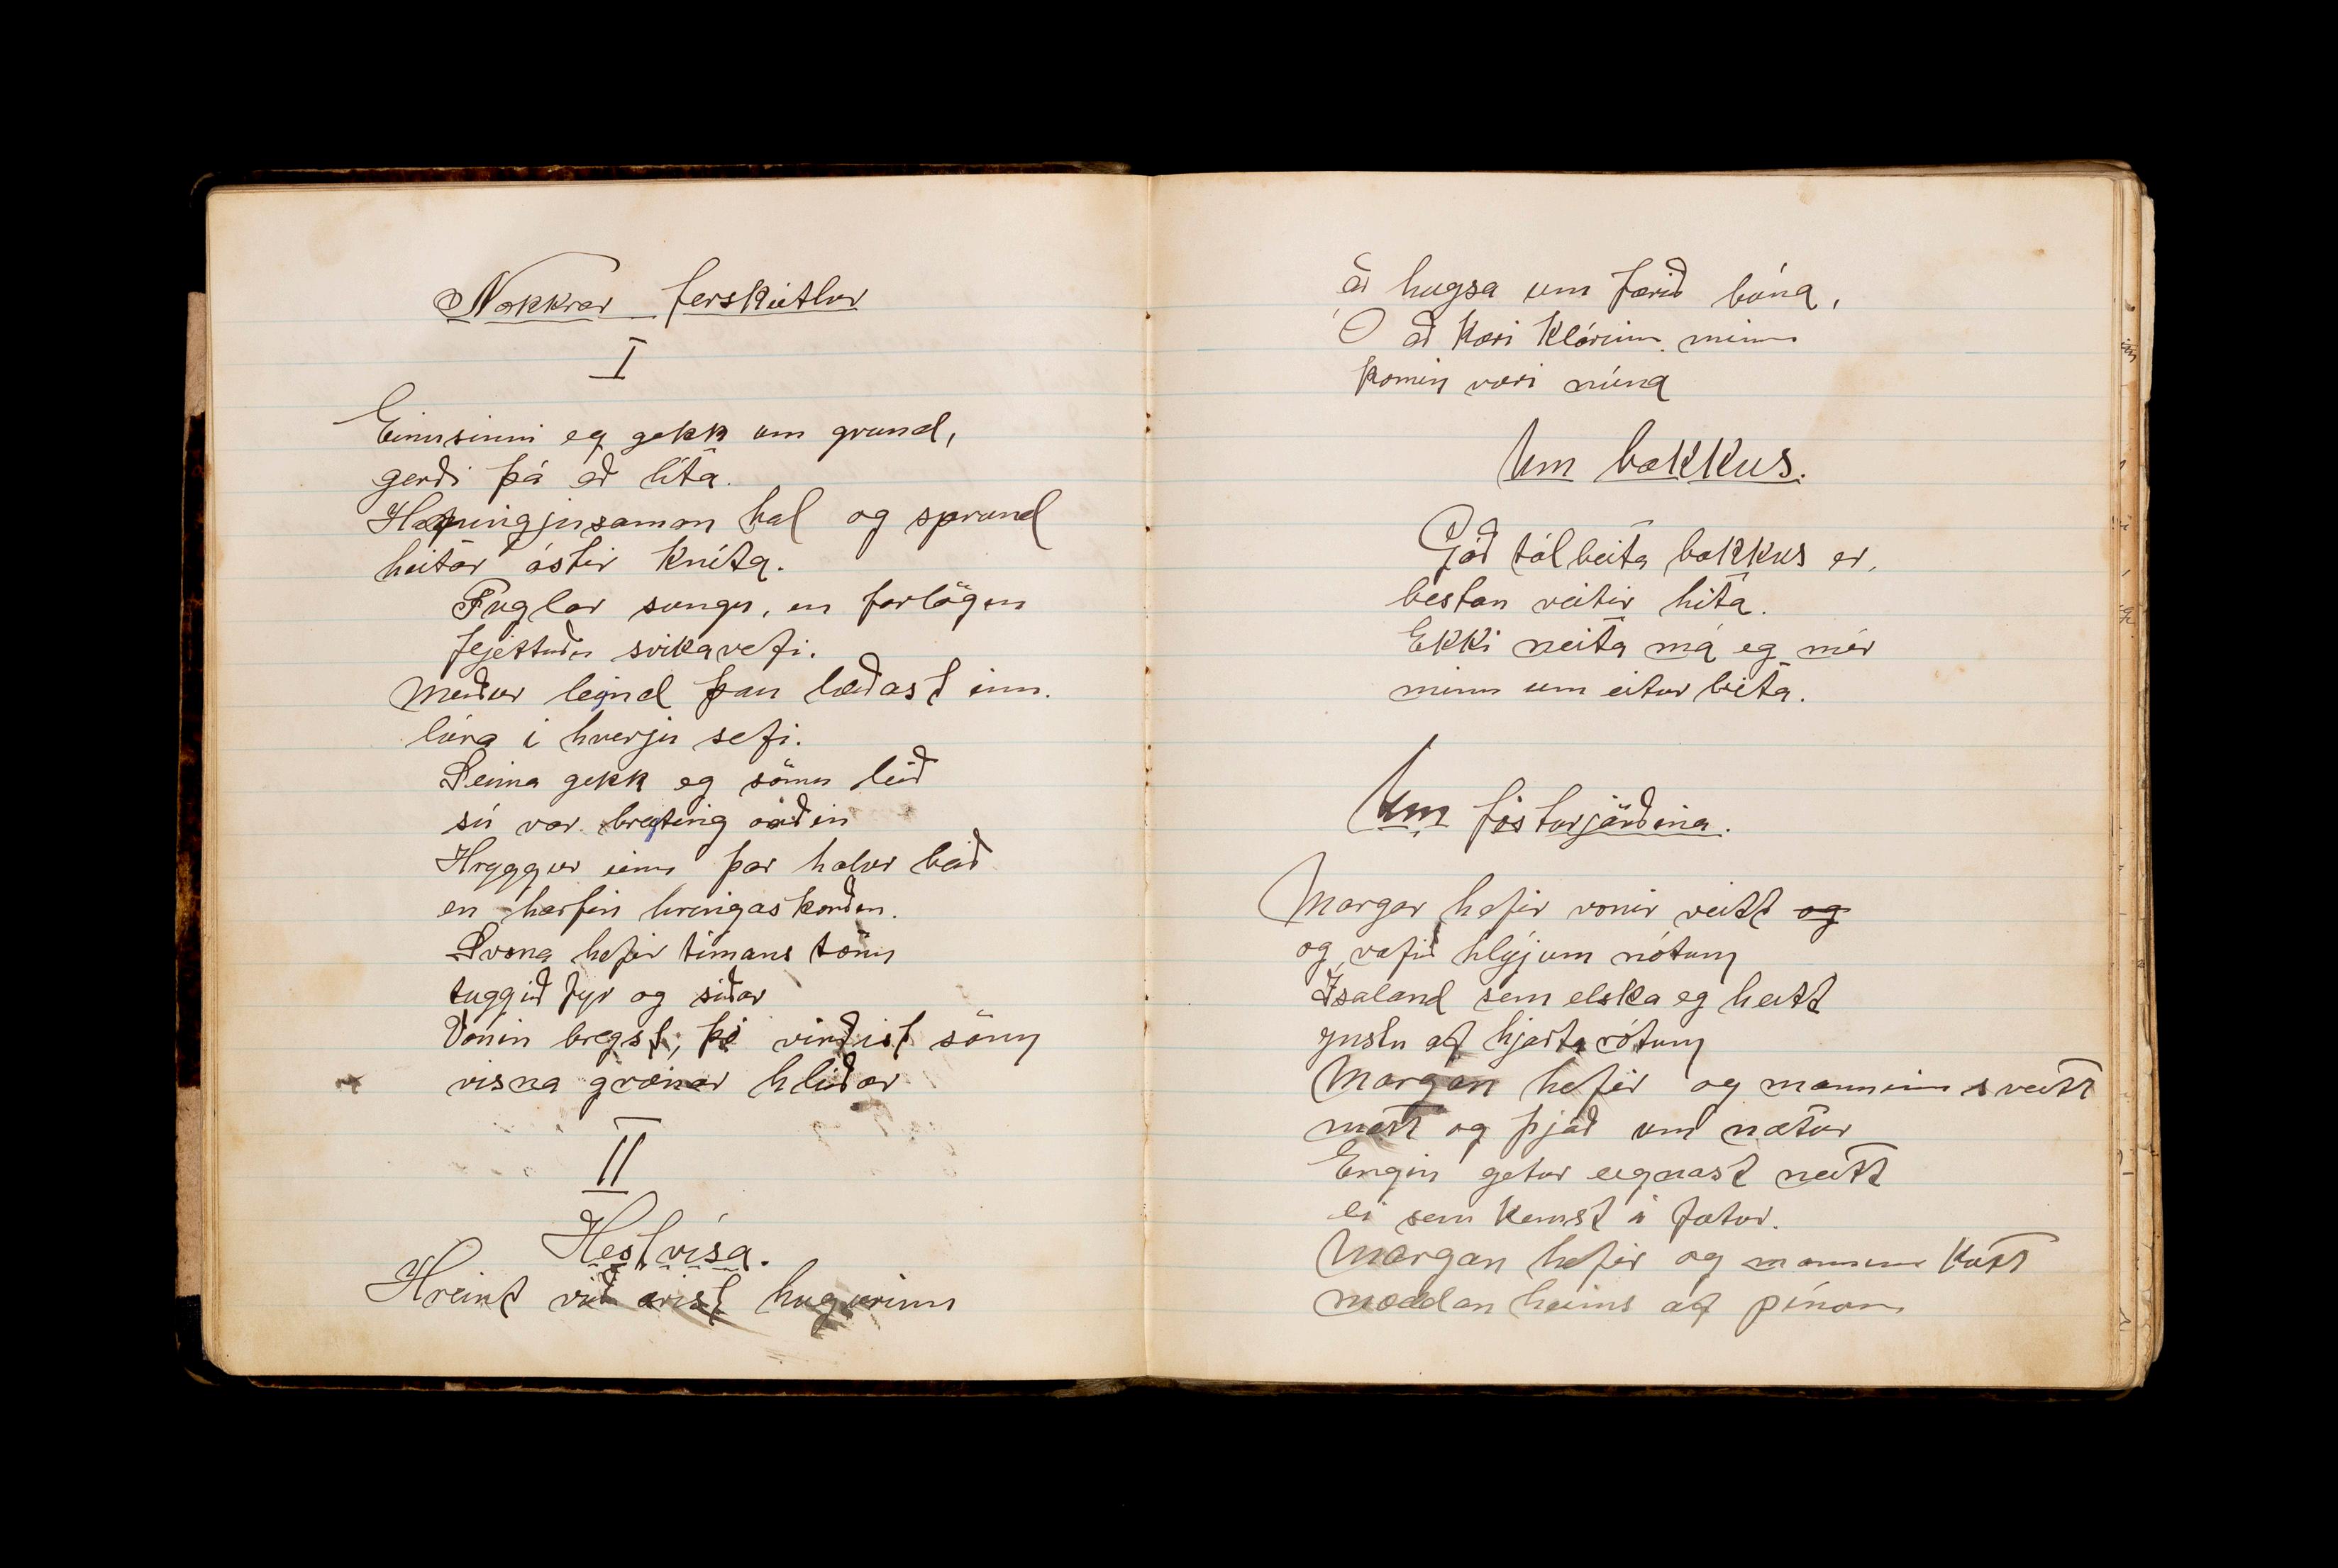 Nokkrar ferskeitlur
I
Einusinni eg gekk um grund,
gerði þá að líta.
Hamingjusaman hal og sprund
heitar ástir kníta.
Fuglar sungu, en forlögin
fljettuðu svikavefi.
Meður leynd þau læðast inn.
lúra í hverju sefi.
Seinna gekk eg sömu leið
sú var breyting orðin
Hryggur einn þar halur beið
en horfin hringaskorðin.
Svona hefir tímans tönn
tuggið fyr og síðar
Vonin bregst, þó virðist sönn
visna grænar hlíðar
II
Hestvísa.
Hreint við örist hugurinn
að hugsa um farið búna,
Ó að kæri klárinn minn
komin væri núna
Um bakkus.
Góð tálbeita bakkus er,
bestan veitir hita.
Ekki neita má eg mér
minn um eitur bita.
Um fósturjörðina.
Margar hefir vonir veitt og
og vafið hlýjum nótum
Ísaland sem elska eg heitt
ynstu af hjarta rótum
Margan hefir og manninn sveitt
mætt og þjáð um nætur
Engin getur eignast neitt
ei sem kemst á fætur.
Margan hefir og manninn kvatt
mæddan heims af pínum